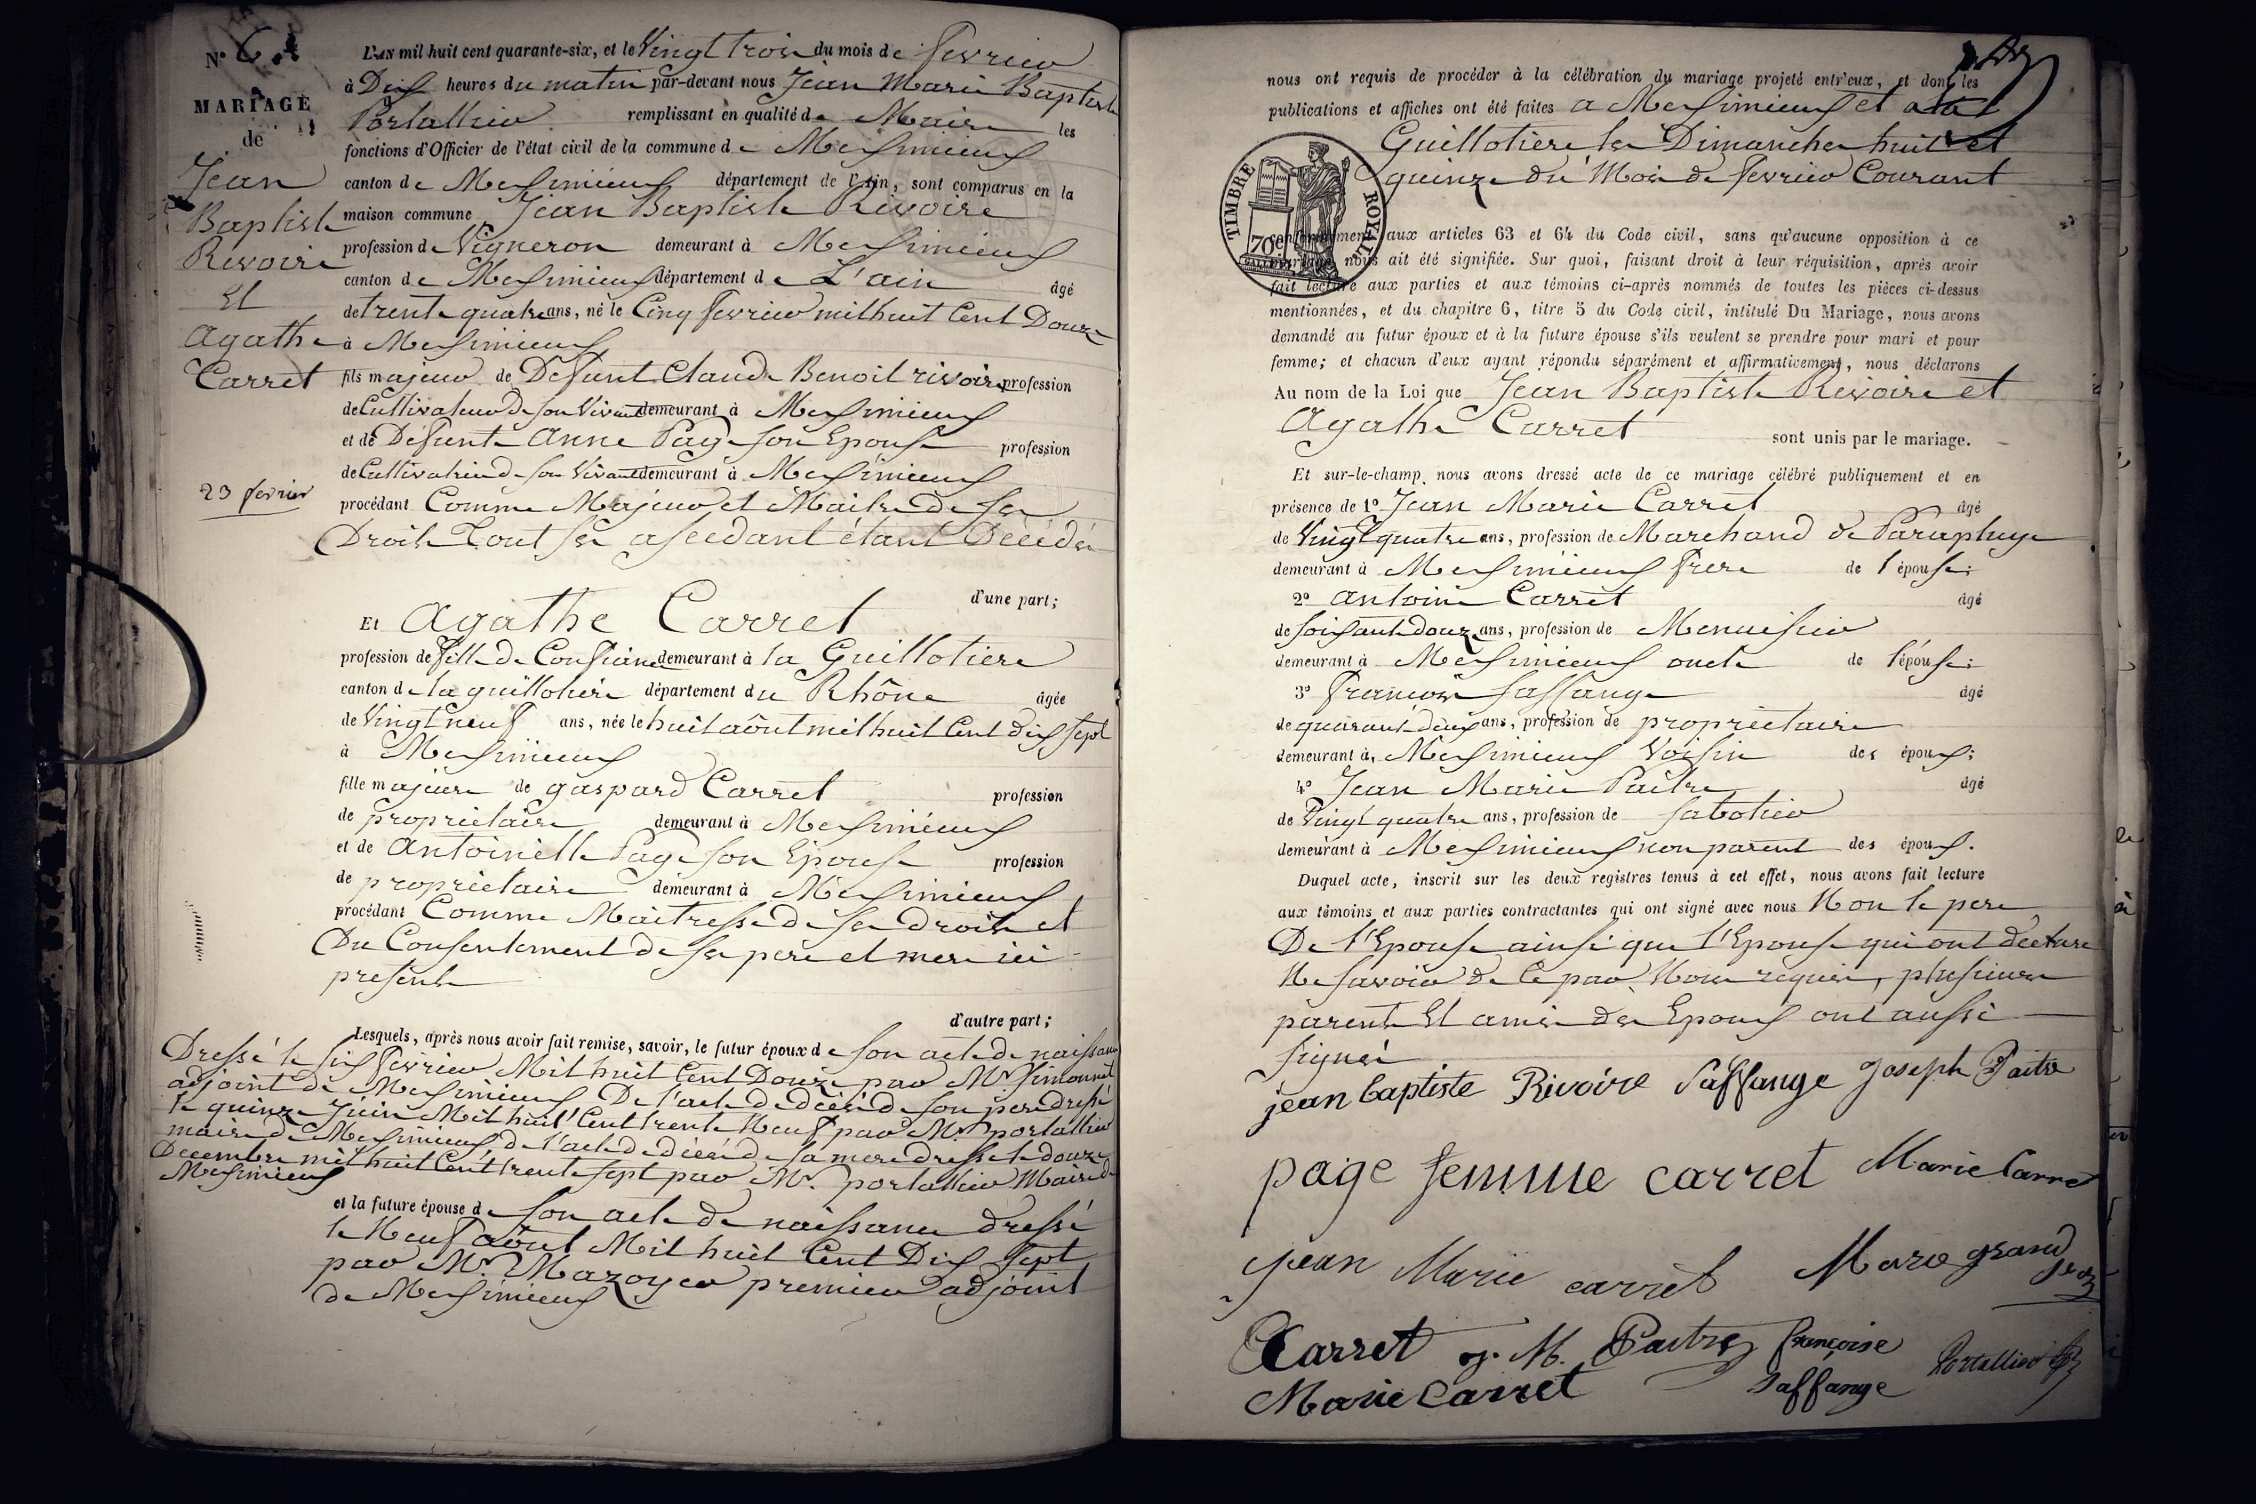 N° 6
MARIAGE
de
Jean
Baptiste
Rivoire
Et
Agathe
Carret
23 fevrier
L'AN mil huit cent quarante-six, et le Vingt trois du mois de fevrier
à Dix heures du matin par-devant nous Jean Marie Baptiste
Portallier remplissant en qualité de Maire les
fonctions d'Officier de l'état civil de la commune de Meximieux
canton de Meximieux département de l'Ain, sont comparus en la
maison commune Jean Baptiste Rivoire
profession de Vigneron demeurant à Meximieux
canton de Meximieux département de L'ain âgé
de trente quatre ans, né le Cinq fevrier mil huit Cent Douze
à Meximieux
fils majeur de Defunt Claude Benoit rivoire profession
de Cultivateur De son Vivant demeurant à Meximieux
et de Defunte Anne Page son Epouse profession
de Cultivatrice de son Vivant demeurant à Meximieux
procédant Comme Majeur et Maitre De ses
Droits Tout ses asecdant étant Décédés
d'une part;
Et Agathe Carret
profession de fille De Confiance demeurant à la Guillotiere
canton de la guillotière département du Rhône âgée
de Vingt neuf ans, née le huit août mil huit Cent dix sept
à Meximieux
fille majeure de gaspard Carret profession
de propriétaire demeurant à Meximieux
et de Antoinette Page son Epouse profession
de propriétaire demeurant à Meximieux
procédant Comme Maitresse de ses droits et
Du Consentement de ses père et mere ici
présents
d'autre part;
Lesquels, après nous avoir fait remise, savoir, le futur époux de son acte de naissance
Dressé le six fevrier Mil huit Cent Douze par Mr. Simonnet
adjoint de Meximieux De l'acte de décès de son pere dressé
le quinze Juin Mil huit Cent trente Neuf par Mr. portallier
maire de Meximieux, de l'acte de décès de sa mere dressé le douze
Decembre mil huit Cent trente sept par Mr. portallier Maire de
Meximieux
et la future épouse de son acte de naissance dressé
le Neuf août Mil huit Cent Dix Sept
par Mr. Mazoyer premier adjoint
de Meximieux
nous ont requis de procéder à la célébration du mariage projeté entr'eux, et dont les
publications et affiches ont été faites a Meximieux et a la
Guillotiere les Dimanches huit et
quinze du Mois de fevrier Courant
TIMBRE ROYAL
70
conformément aux articles 63 et 64 du Code civil, sans qu'aucune opposition à ce
mariage nous ait été signifiée. Sur quoi, faisant droit à leur réquisition, après avoir
fait lecture aux parties et aux témoins ci-après nommés de toutes les pièces ci-dessus
mentionnées, et du chapitre 6, titre 5 du Code civil, intitulé Du Mariage, nous avons
demandé au futur époux et à la future épouse s'ils veulent se prendre pour mari et pour
femme; et chacun d'eux ayant répondu séparément et affirmativement, nous déclarons
Au nom de la Loi que Jean Baptiste Rivoire et
Agathe Carret sont unis par le mariage.
Et sur-le-champ nous avons dressé acte de ce mariage célébré publiquement et en
présence de 1° Jean Marie Carret âgé
de Vingt quatre ans, profession de Marchand de Parapluye
demeurant à Meximieux frere de l'épouse;
2° antoine Carret âgé
de soixante douze ans, profession de Menuisier
demeurant à Meximieux oncle de l'épouse;
3° François Saffange âgé
de quarante deux ans, profession de propriétaire
demeurant à Meximieux Voisin des époux;
4° Jean Marie Paitre âgé
de Vingt quatre ans, profession de sabotier
demeurant à Meximieux non parent des époux.
Duquel acte, inscrit sur les deux registres tenus à cet effet, nous avons fait lecture
aux témoins et aux parties contractantes qui ont signé avec nous Non le pere
De l'Epouse ainsi que l'Epouse qui ont déclaré
Ne savoir de Ce par Nous requis, plusieurs
parents Et amis des Epoux ont aussi
signés
jean baptiste Rivoire Saffange Joseph Paitre
page femme carret Marie Carret
jean Marie carret Marie grand
Carret j. M. Paitre françoise
Marie Carret saffange Portallier